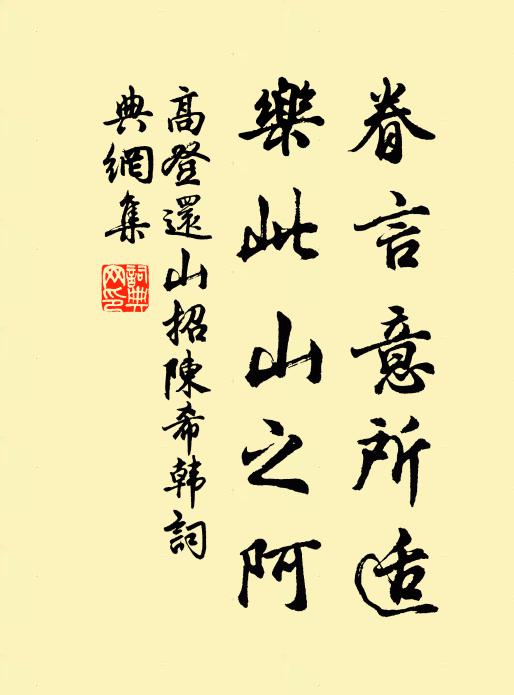 眷言意所适
樂此山之阿
高登還山招陳希韩詞
典網集
詞典网印